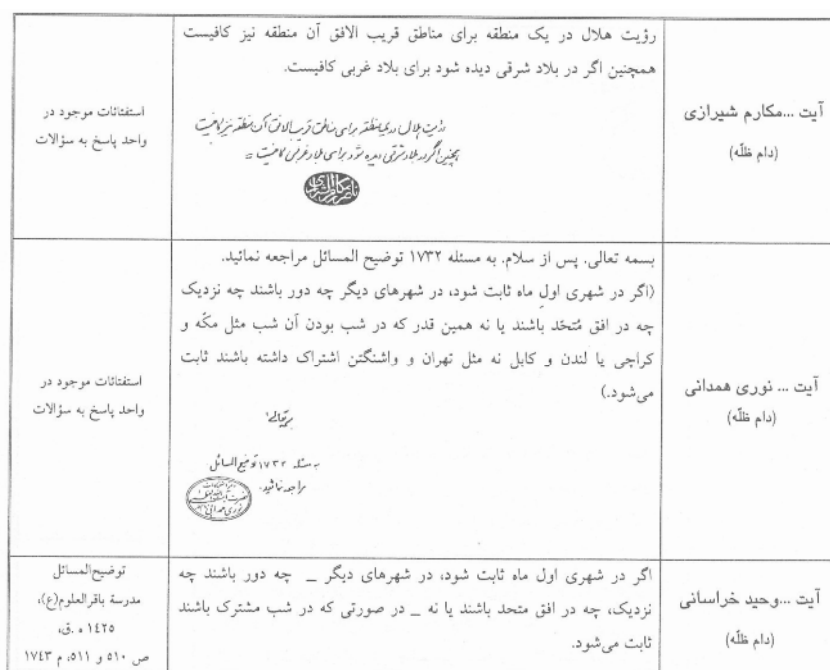 آیت ...مکارم شیرازی
(دام ظلّه)
رؤیت هلال در یک منطقه برای مناطق قریب الافق آن منطقه نیز کافیست
همچنین اگر در بلاد شرقی دیده شود برای بلاد غربی کافیست.
رؤیت هلال در یک منطقه برای مناطق قریب الافق آن منطقه نیز کافیست
همچنین اگر در بلاد شرقی دیده شود برای بلاد غربی کافیست
ناصر مکارم شیرازی
استفتائات موجود در
واحد پاسخ به سؤالات
آیت ... نوری همدانی
(دام ظلّه)
بسمه تعالی. پس از سلام. به مسئله ۱۷۳۲ توضیح المسائل مراجعه نمائید.
(اگر در شهری اول ماه ثابت شود، در شهرهای دیگر چه دور باشند چه نزدیک
چه در افق مُتحّد باشند یا نه همین قدر که در شب بودن آن شب مثل مکّه و
کراچی یا لندن و کابل نه مثل تهران و واشنگتن اشتراک داشته باشند ثابت
می‌شود.)
بسمه تعالی
به مسئله ۱۷۳۲ توضیح المسائل
مراجعه نمائید.
استفتائات موجود در
واحد پاسخ به سؤالات
آیت ...وحید خراسانی
(دام ظلّه)
اگر در شهری اول ماه ثابت شود، در شهرهای دیگر _ چه دور باشند چه
نزدیک، چه در افق متحد باشند یا نه _ در صورتی که در شب مشترک باشند
ثابت می‌شود.
توضیح‌المسائل
مدرسة باقرالعلوم(ع)،
۱٤۲٥ ه .ق،
ص ٥١٠ و ٥١١، م ۱۷٤۳